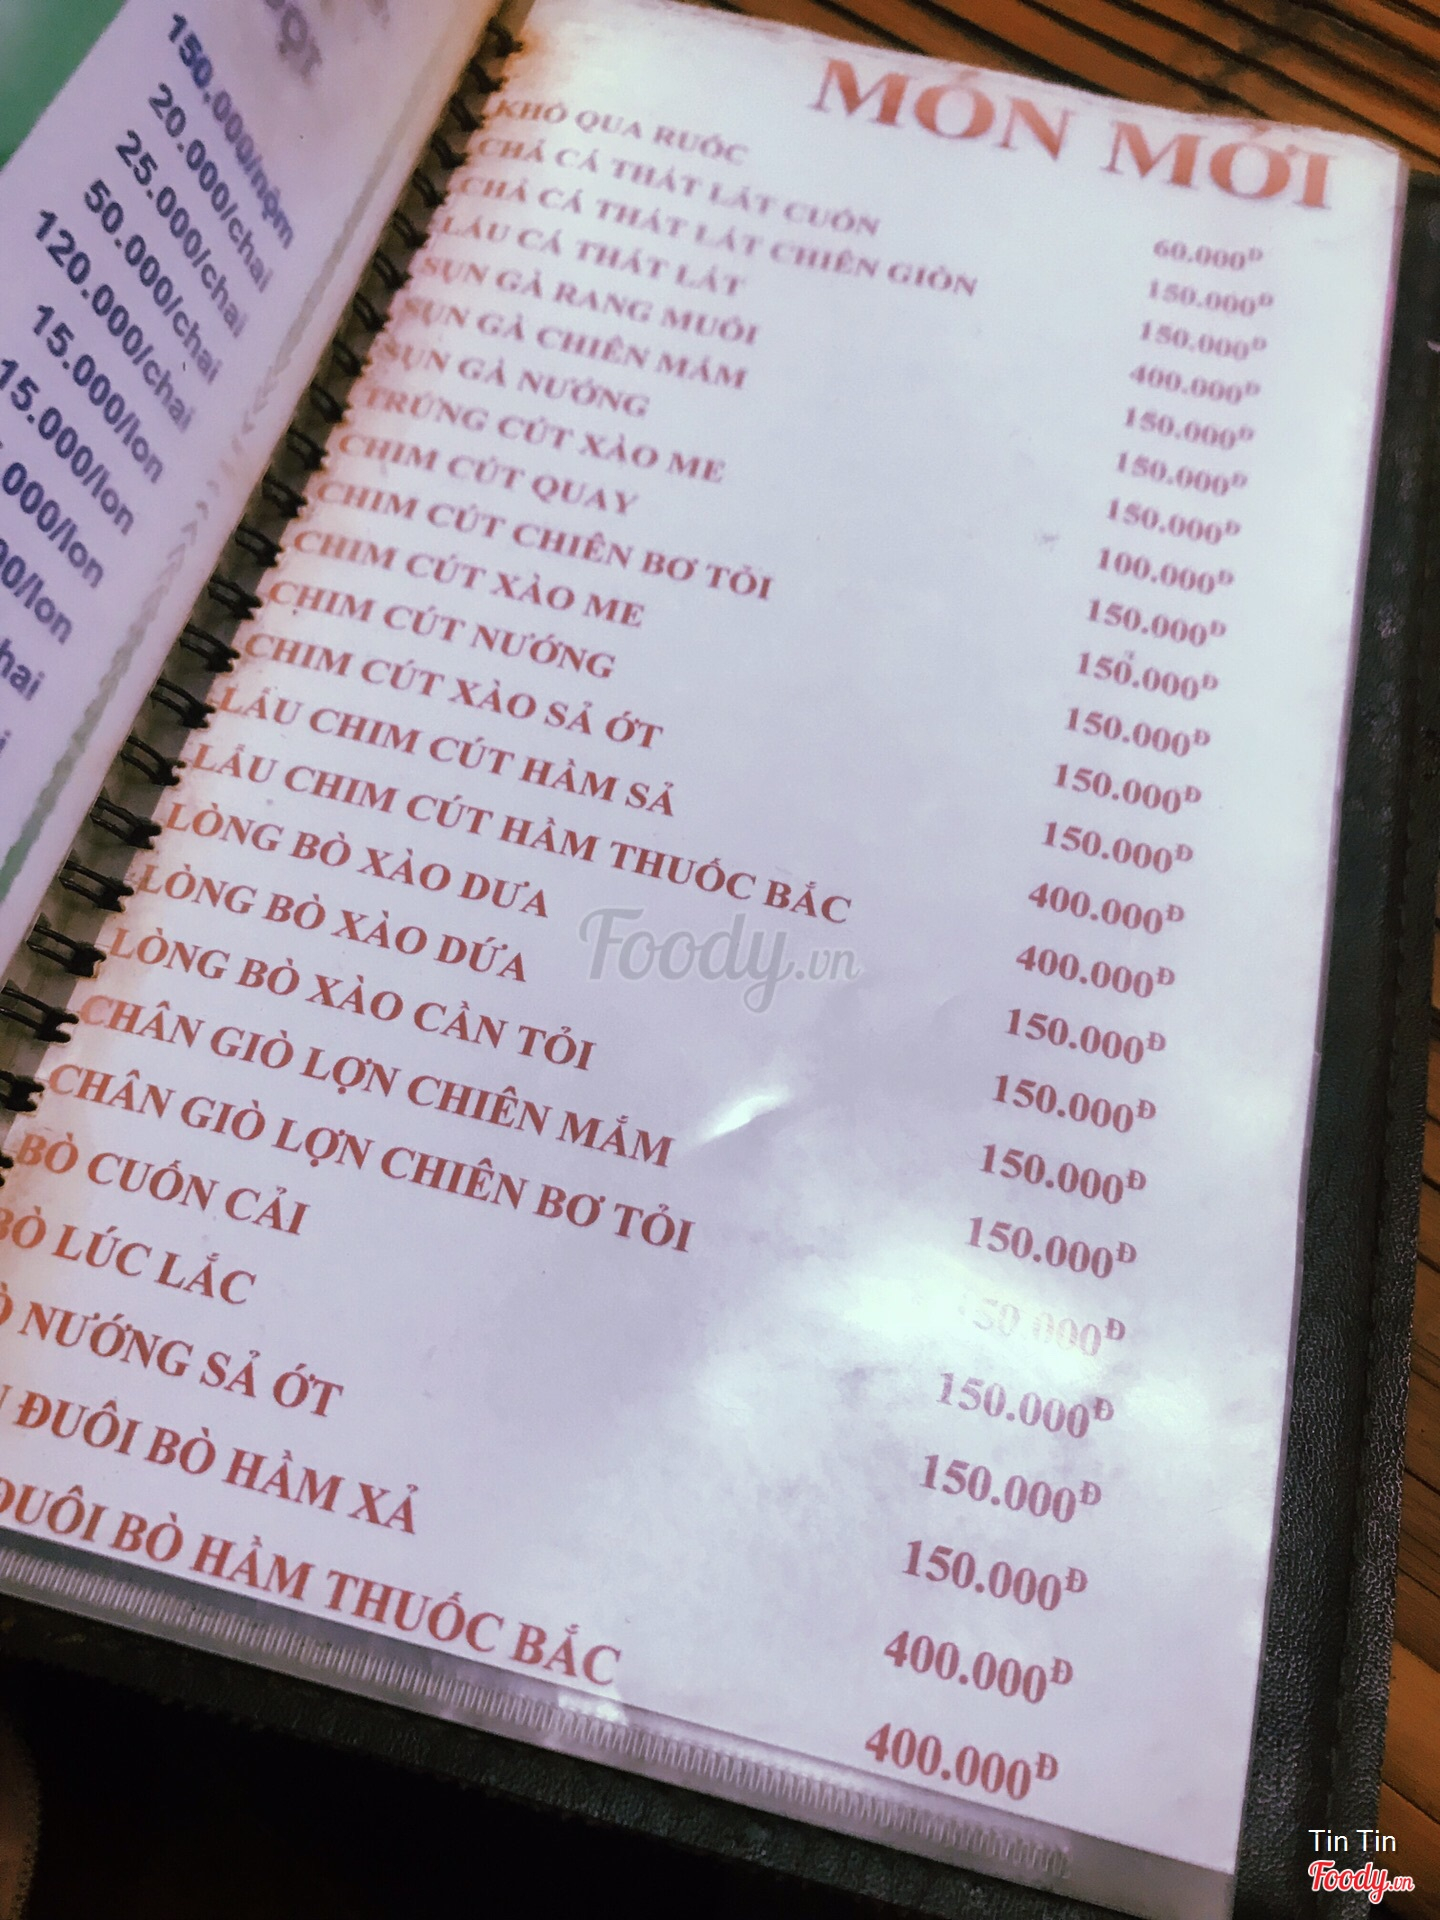 150.000/nộm
20.000/chai
25.000/chai
50.000/chai
120.000/chai
15.000/lon
15.000/lon
.000/lon
00/lon
hai
MÓN MỚI
KHỔ QUA RUỐC 60.000Đ
CHẢ CÁ THÁT LÁT CUỐN 150.000Đ
CHẢ CÁ THÁT LÁT CHIÊN GIÒN 150.000Đ
LẨU CÁ THÁT LÁT 400.000Đ
SỤN GÀ RANG MUỐI 150.000Đ
SỤN GÀ CHIÊN MẮM 150.000Đ
SỤN GÀ NƯỚNG 150.000Đ
TRỨNG CÚT XÀO ME 100.000Đ
CHIM CÚT QUAY 150.000Đ
CHIM CÚT CHIÊN BƠ TỎI 150.000Đ
CHIM CÚT XÀO ME 150.000Đ
CHIM CÚT NƯỚNG 150.000Đ
CHIM CÚT XÀO SẢ ỚT 150.000Đ
LẨU CHIM CÚT HẦM SẢ 400.000Đ
LẨU CHIM CÚT HẦM THUỐC BẮC 400.000Đ
LÒNG BÒ XÀO DƯA 150.000Đ
LÒNG BÒ XÀO DỨA 150.000Đ
LÒNG BÒ XÀO CẦN TỎI 150.000Đ
CHÂN GIÒ LỢN CHIÊN MẮM 150.000Đ
CHÂN GIÒ LỢN CHIÊN BƠ TỎI 150.000Đ
BÒ CUỐN CẢI 150.000Đ
BÒ LÚC LẮC 150.000Đ
NƯỚNG SẢ ỚT 150.000Đ
ĐUÔI BÒ HẦM XẢ 400.000Đ
ĐUÔI BÒ HẦM THUỐC BẮC 400.000Đ
Foody.vn
Tin Tin
Foody.vn